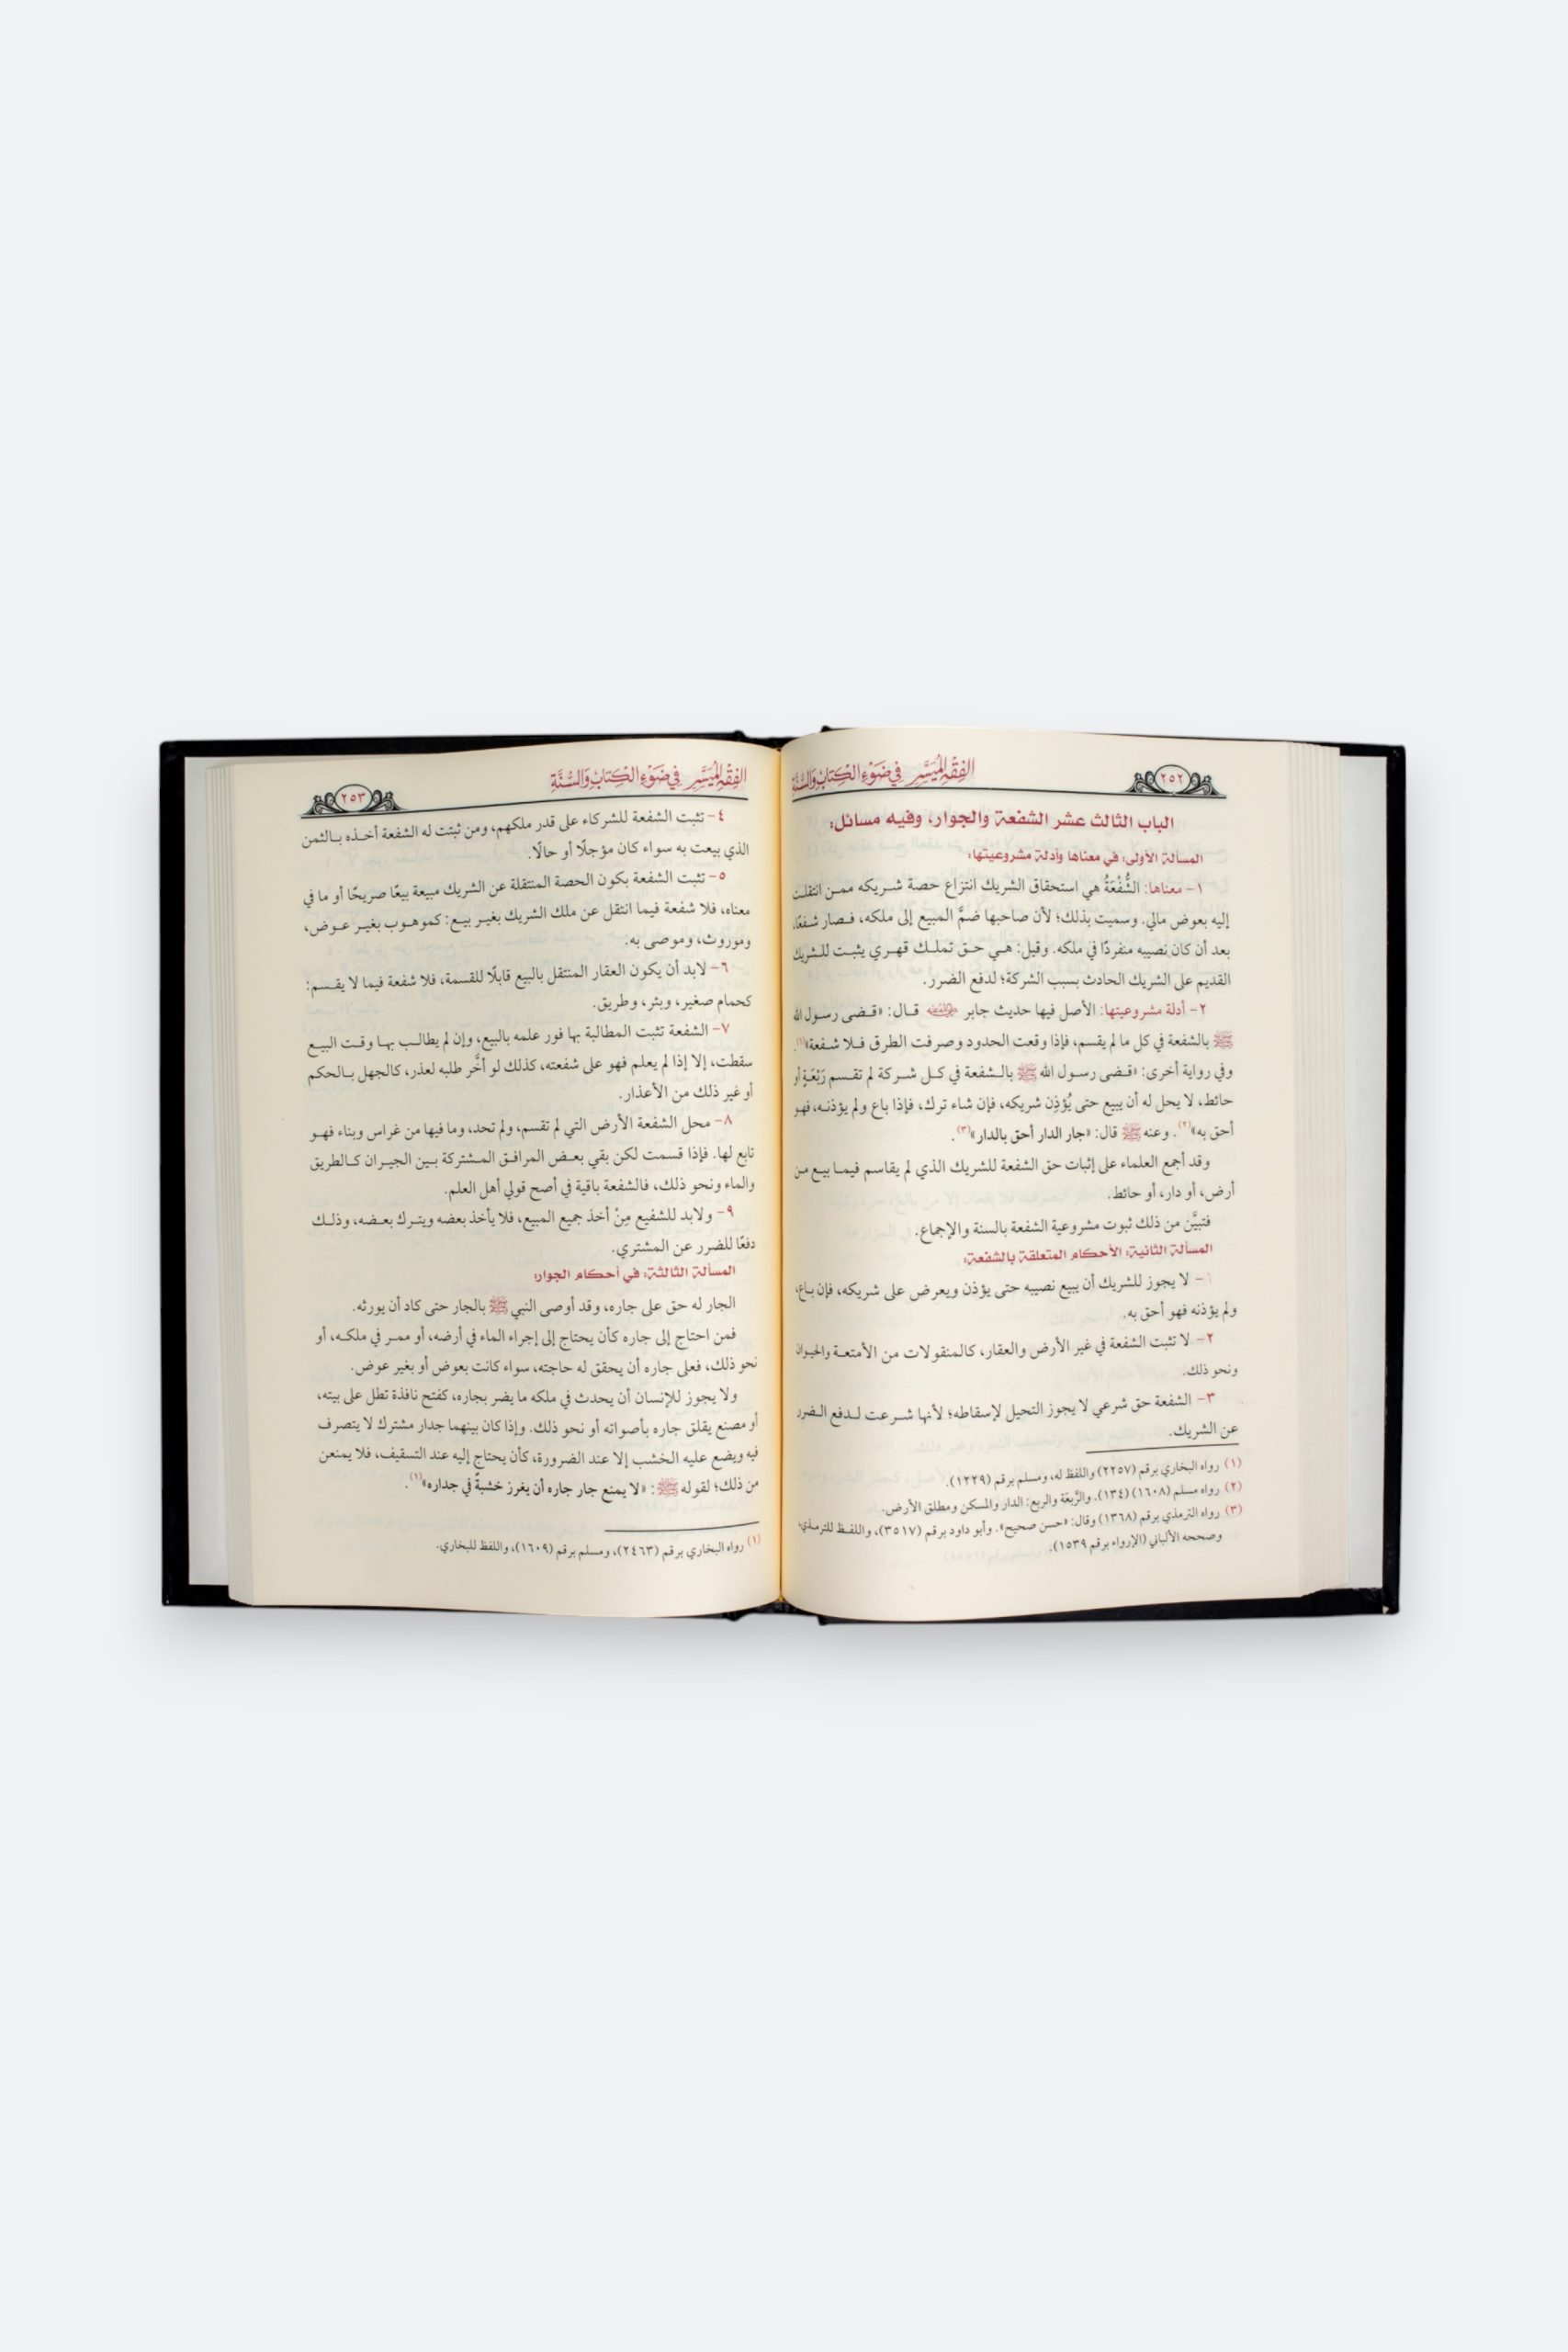 ٢٥٢
الفِقْهُ المُيَسَّر في ضَوْءِ الكِتَابِ وَالسُّنَّةِ
الباب الثالث عشر الشفعة والجوار، وفيه مسائل:
المسألة الأولى: في معناها وأدلة مشروعيتها:
١- معناها: الشُّفْعَةُ هي استحقاق الشريك انتزاع حصة شـريكه ممـن انتقلت
إليه بعوض مالي. وسميت بذلك؛ لأن صاحبها ضمَّ المبيع إلى ملكه، فـصار شـفعًا،
بعد أن كان نصيبه منفردًا في ملكه. وقيل: هـي حـق تملـك قهـري يثبـت للـشريك
القديم على الشريك الحادث بسبب الشركة؛ لدفع الضرر.
٢- أدلة مشروعيتها: الأصل فيها حديث جابر رضي الله عنه قـال: «قـضى رسـول الله
ﷺ بالشفعة في كل ما لم يقسم، فإذا وقعت الحدود وصرفت الطرق فـلا شـفعة»(١).
وفي رواية أخرى: «قـضى رسـول الله ﷺ بالـشفعة في كـل شـركة لم تقـسم رَبْعَةٍ أو
حائط، لا يحل له أن يبيع حتى يُؤذِن شريكه، فإن شاء ترك، فإذا باع ولم يؤذنـه، فهو
أحق به»(٢). وعنه ﷺ قال: «جار الدار أحق بالدار»(٣).
وقد أجمع العلماء على إثبات حق الشفعة للشريك الذي لم يقاسم فيمـا بيـع مـن
أرض، أو دار، أو حائط.
فتبيَّن من ذلك ثبوت مشروعية الشفعة بالسنة والإجماع.
المسألة الثانية: الأحكام المتعلقة بالشفعة:
١- لا يجوز للشريك أن يبيع نصيبه حتى يؤذن ويعرض على شريكه، فإن بـاع،
ولم يؤذنه فهو أحق به.
٢- لا تثبت الشفعة في غير الأرض والعقار، كالمنقولات من الأمتعـة والحيوان
ونحو ذلك.
٣- الشفعة حق شرعي لا يجوز التحيل لإسقاطه؛ لأنها شـرعت لـدفع الـضرر
عن الشريك.
(١) رواه البخاري برقم (٢٢٥٧) واللفظ له، ومسلم برقم (١٢٢٩).
(٢) رواه مسلم (١٦٠٨) (١٣٤). والرَّبعَة والربع: الدار والمسكن ومطلق الأرض.
(٣) رواه الترمذي برقم (١٣٦٨) وقال: «حسن صحيح». وأبو داود برقم (٣٥١٧)، واللفـظ للترمـذي،
وصححه الألباني (الإرواء برقم ١٥٣٩).
الفِقْهُ المُيَسَّر في ضَوْءِ الكِتَابِ وَالسُّنَّةِ
٢٥٣
٤- تثبت الشفعة للشركاء على قدر ملكهم، ومن ثبتت له الشفعة أخـذه بـالثمن
الذي بيعت به سواء كان مؤجلًا أو حالًا.
٥- تثبت الشفعة بكون الحصة المنتقلة عن الشريك مبيعة بيعًا صريحًا أو ما في
معناه، فلا شفعة فيما انتقل عن ملك الشريك بغيـر بيـع: كموهـوب بغيـر عـوض،
وموروث، وموصى به.
٦- لابد أن يكون العقار المنتقل بالبيع قابلًا للقسمة، فلا شفعة فيما لا يقـسم:
كحمام صغير، وبئر، وطريق.
٧- الشفعة تثبت المطالبة بها فور علمه بالبيع، وإن لم يطالـب بهـا وقـت البيـع
سقطت، إلا إذا لم يعلم فهو على شفعته، كذلك لو أخَّر طلبه لعذر، كالجهل بـالحكم
أو غير ذلك من الأعذار.
٨- محل الشفعة الأرض التي لم تقسم، ولم تحد، وما فيها من غراس وبناء فهـو
تابع لها. فإذا قسمت لكن بقي بعـض المرافـق المـشتركة بـين الجيـران كـالطريق
والماء ونحو ذلك، فالشفعة باقية في أصح قولي أهل العلم.
٩- ولابد للشفيع مِنْ أخذ جميع المبيع، فلا يأخذ بعضه ويتـرك بعـضه، وذلـك
دفعًا للضرر عن المشتري.
المسألة الثالثة: في أحكام الجوار:
الجار له حق على جاره، وقد أوصى النبي ﷺ بالجار حتى كاد أن يورثه.
فمن احتاج إلى جاره كأن يحتاج إلى إجراء الماء في أرضه، أو ممـر في ملكـه، أو
نحو ذلك، فعلى جاره أن يحقق له حاجته، سواء كانت بعوض أو بغير عوض.
ولا يجوز للإنسان أن يحدث في ملكه ما يضر بجاره، كفتح نافذة تطل على بيته،
أو مصنع يقلق جاره بأصواته أو نحو ذلك. وإذا كان بينهما جدار مشترك لا يتصرف
فيه ويضع عليه الخشب إلا عند الضرورة، كأن يحتاج إليه عند التسقيف، فلا يمنعن
من ذلك؛ لقوله ﷺ: «لا يمنع جار جاره أن يغرز خشبةً في جداره»(١).
(١) رواه البخاري برقم (٢٤٦٣)، ومسلم برقم (١٦٠٩)، واللفظ للبخاري.